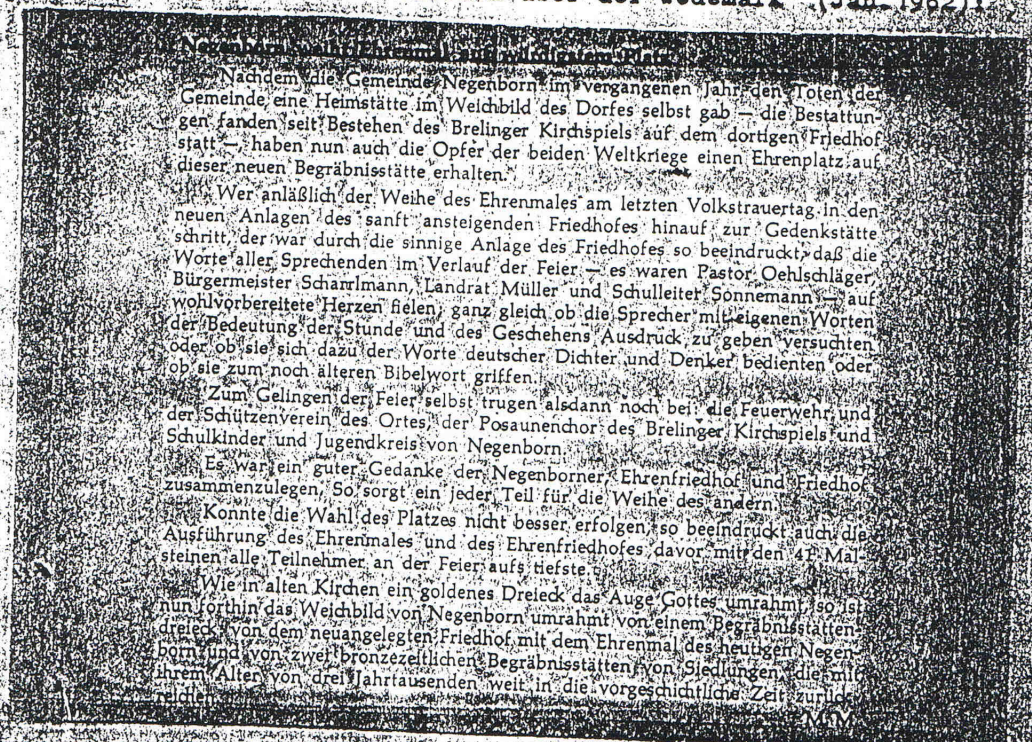 der Wedemark (Jan. 1962):
Negenborn weiht Ehrenmal auf würdigstem Platz
Nachdem die Gemeinde Negenborn im vergangenen Jahr den Toten der
Gemeinde eine Heimstätte im Weichbild des Dorfes selbst gab — die Bestattun-
gen fanden seit Bestehen des Brelinger Kirchspiels auf dem dortigen Friedhof
statt —, haben nun auch die Opfer der beiden Weltkriege einen Ehrenplatz auf
dieser neuen Begräbnisstätte erhalten.
Wer anläßlich der Weihe des Ehrenmales am letzten Volkstrauertag in den
neuen Anlagen des sanft ansteigenden Friedhofes hinauf zur Gedenkstätte
schritt, der war durch die sinnige Anlage des Friedhofes so beeindruckt, daß die
Worte aller Sprechenden im Verlauf der Feier — es waren Pastor Oehlschläger,
Bürgermeister Scharrlmann, Landrat Müller und Schulleiter Sonnemann — auf
wohlvorbereitete Herzen fielen, ganz gleich ob die Sprecher mit eigenen Worten
der Bedeutung der Stunde und des Geschehens Ausdruck zu geben versuchten
oder ob sie sich dazu der Worte deutscher Dichter und Denker bedienten oder
ob sie zum noch älteren Bibelwort griffen.
Zum Gelingen der Feier selbst trugen alsdann noch bei: die Feuerwehr und
der Schützenverein des Ortes, der Posaunenchor des Brelinger Kirchspiels und
Schulkinder und Jugendkreis von Negenborn.
Es war ein guter Gedanke der Negenborner, Ehrenfriedhof und Friedhof
zusammenzulegen. So sorgt ein jeder Teil für die Weihe des andern.
Konnte die Wahl des Platzes nicht besser erfolgen, so beeindruckt auch die
Ausführung des Ehrenmales und des Ehrenfriedhofes davor mit den 41 Mal-
steinen alle Teilnehmer an der Feier aufs tiefste.
Wie in alten Kirchen ein goldenes Dreieck das Auge Gottes umrahmt, so ist
nun forthin das Weichbild von Negenborn umrahmt von einem Begräbnisstätten-
dreieck, von dem neuangelegten Friedhof mit dem Ehrenmal des heutigen Negen-
born und von zwei bronzezeitlichen Begräbnisstätten von Siedlungen, die mit
ihrem Alter von drei Jahrtausenden weit in die vorgeschichtliche Zeit zurück-
reichen.
M.M.